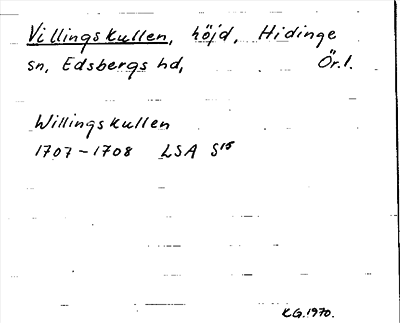 Villingskullen, höjd, Hidinge
sn, Edsbergs hd, Ör.l.
Willingskullen
1707-1708 LSA S15
K.G. 1970.